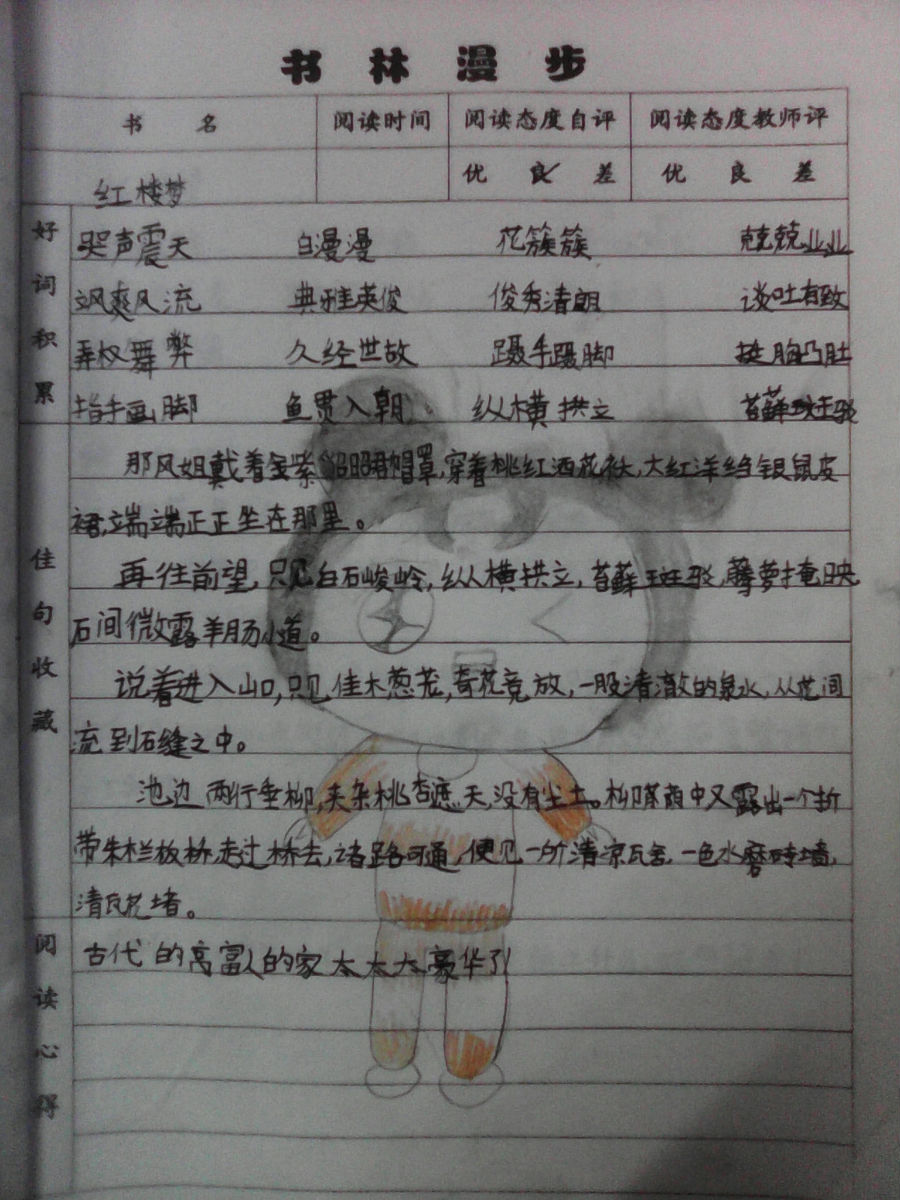 书林漫步
书名 阅读时间 阅读态度自评 阅读态度教师评
红楼梦 优 良 差 优 良 差
好词积累
哭声震天 白漫漫 花簇簇 兢兢业业
飒爽风流 典雅英俊 俊秀清朗 谈吐有致
弄权舞弊 久经世故 蹑手蹑脚 挺胸凸肚
指手画脚 鱼贯入朝 纵横拱立 苔藓斑驳
佳句收藏
那凤姐戴着金紫貂昭君帽罩,穿着桃红洒花袄,大红洋绉银鼠皮
裙,端端正正坐在那里。
再往前望,只见白石峻岭,纵横拱立,苔藓斑驳,藤萝掩映,
石间微露羊肠小道。
说着进入山口,只见佳木葱茏,奇花竞放,一股清澈的泉水,从花间
流到石缝之中。
池边两行垂柳,夹杂桃杏遮天,没有尘土。柳荫中又露出一个折
带朱栏板桥,走过桥去,诸路可通,便见一所清凉瓦舍,一色水磨砖墙,
清瓦花堵。
阅读心得
古代的高富人的家太太太豪华了